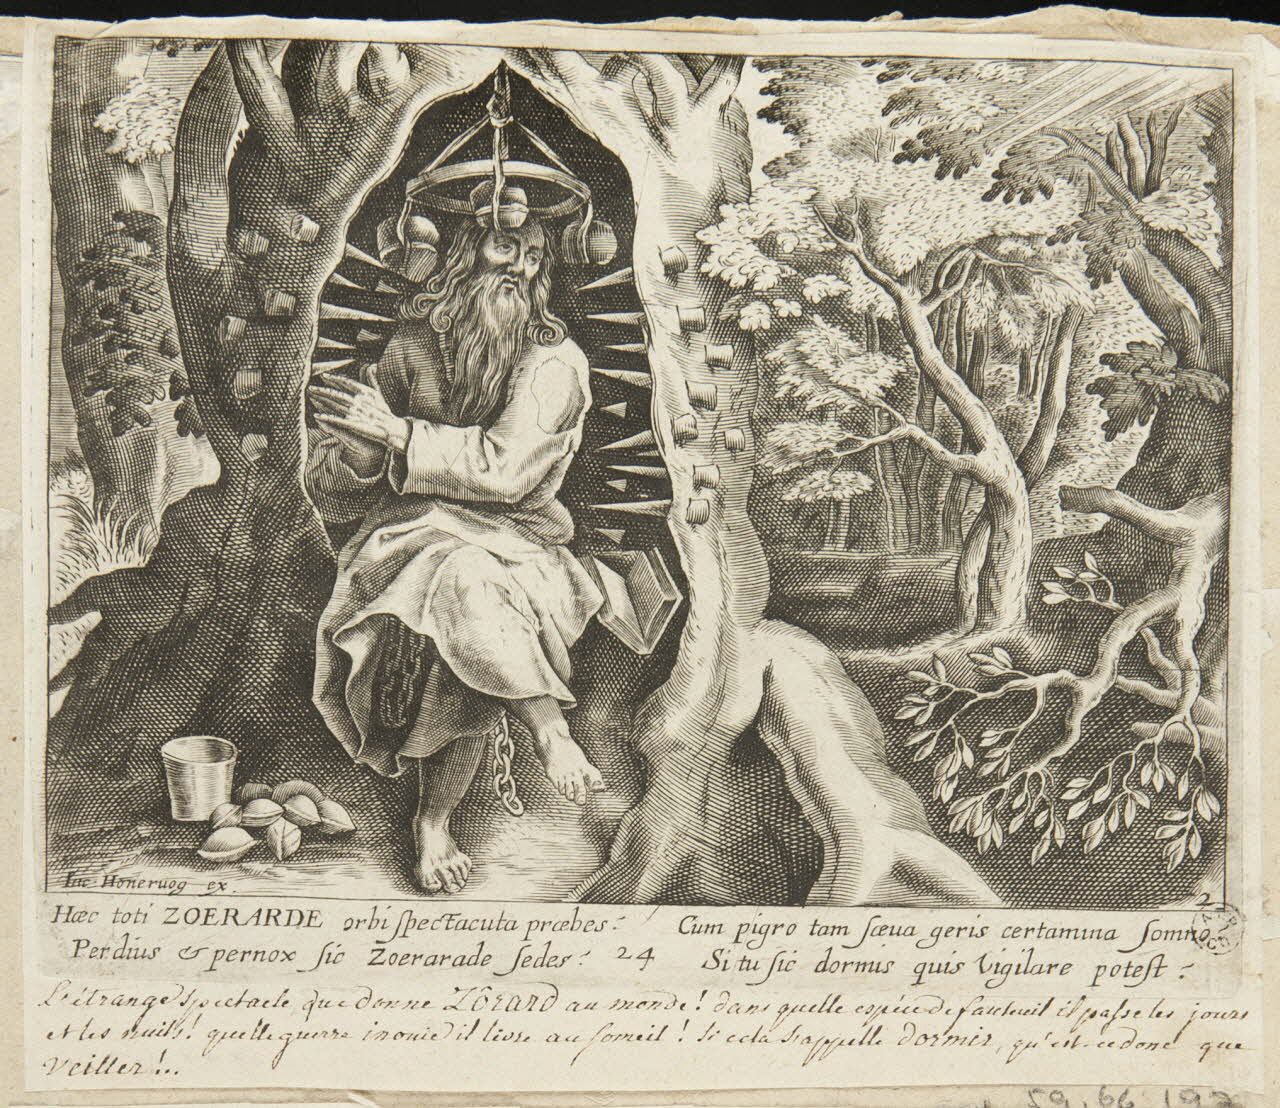 Iac. Honeruog ex.
2
Hæc toti ZOERARDE orbi spectacuta præbes: Cum pigro tam sæua geris certamina somno
Perdius & pernox sic Zoerarade sedes: 24 Si tu sic dormis quis vigilare potest:
L'étrange spectacle, que donne Zôrard au monde! dans quelle espéce de fauteuil il passe les jours
et les nuits! quelle guerre inouie il livre au someil! si cela s'appelle dormir, qu'est-ce donc que
veiller!..
59.66.197